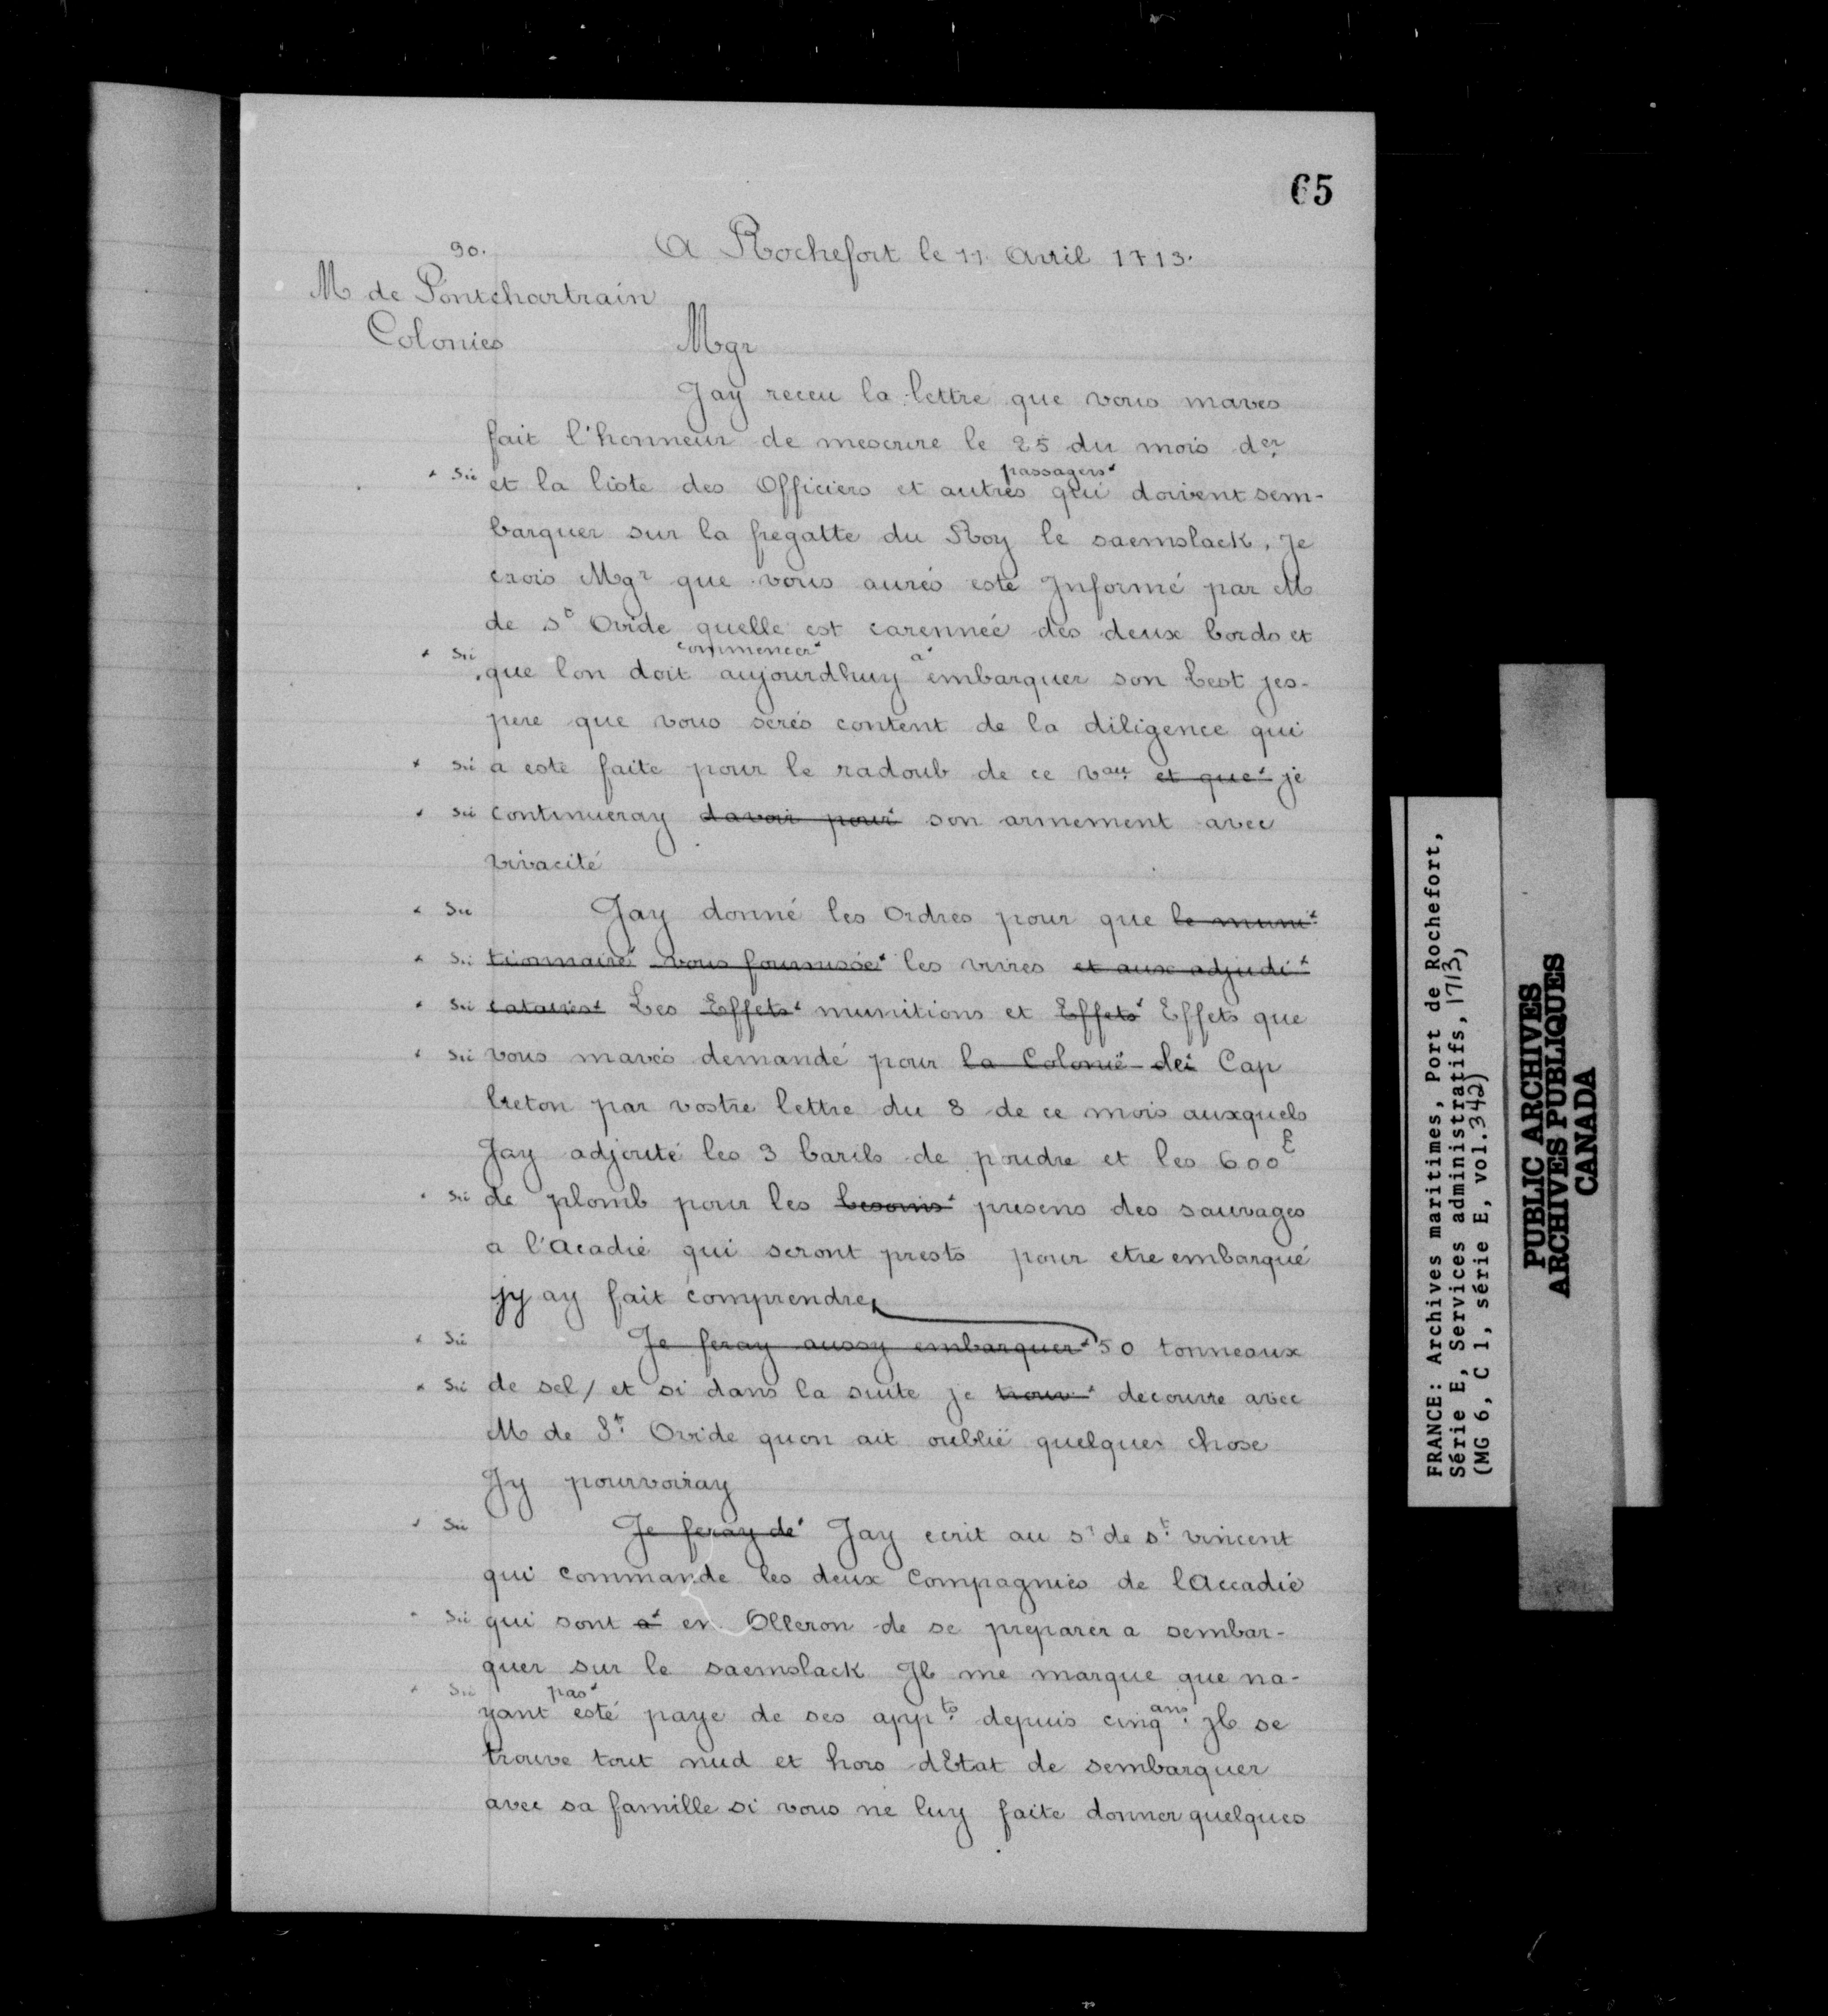 65
90.
A Rochefort le 11 Avril 1713.
M de Pontchartrain
Colonies
Mgr
Jay receu la lettre que vous maves
fait l'honneur de mescrire le 25 du mois der
* Sic et la liste des Officiers et autres passagers* qui doivent sem-
barquer sur la fregatte du Roy le saemslack, Je
crois Mgr que vous aurés esté Informé par M
de St Ovide quelle est carennée des deux bords et
* Sic que lon doit commencer* aujourdhuy a* embarquer son lest jes-
pere que vous serés content de la diligence qui
* Sic a esté faite pour le radoub de ce vau et que* je
* Sic continueray davoir pour* son armement avec
vivacité
* Sic Jay donné les Ordres pour que le muni*
* Sic tionnaire vous fournisse* les vivres et aux adjudi*
* Sic cataires* Les Effets* munitions et Effets* Effets que
* Sic vous mavés demandé pour la Colonie de* Cap
breton par vostre lettre du 8 de ce mois auxquels
Jay adjouté les 3 barils de poudre et les 600
* Sic de plomb pour les besoins* presens des sauvages
a l'Acadie qui seront prests pour etre embarqué
jy ay fait comprendre
* Sic Je feray aussy embarquer* 50 tonneaux
* Sic de sel / et si dans la suite je trouv* decouvre avec
M de St Ovide quon ait oublié quelques chose
Jy pourvoiray
* Sic Je feray de* Jay ecrit au Sr de St vincent
qui commande les deux Compagnies de lAccadie
* Sic qui sont a* en Olleron de se preparer a sembar-
quer sur le saemslack Il me marque que na-
* Sic yant pas* esté paye de ses appts depuis cinq ans. Jl se
trouve tout nud et hors dEtat de sembarquer
avec sa famille si vous ne luy faite donner quelques
FRANCE: Archives maritimes, Port de Rochefort,
Série E, Services administratifs, 1713
(MG 6, C 1, série E, vol.342)
PUBLIC ARCHIVES
ARCHIVES PUBLIQUES
CANADA